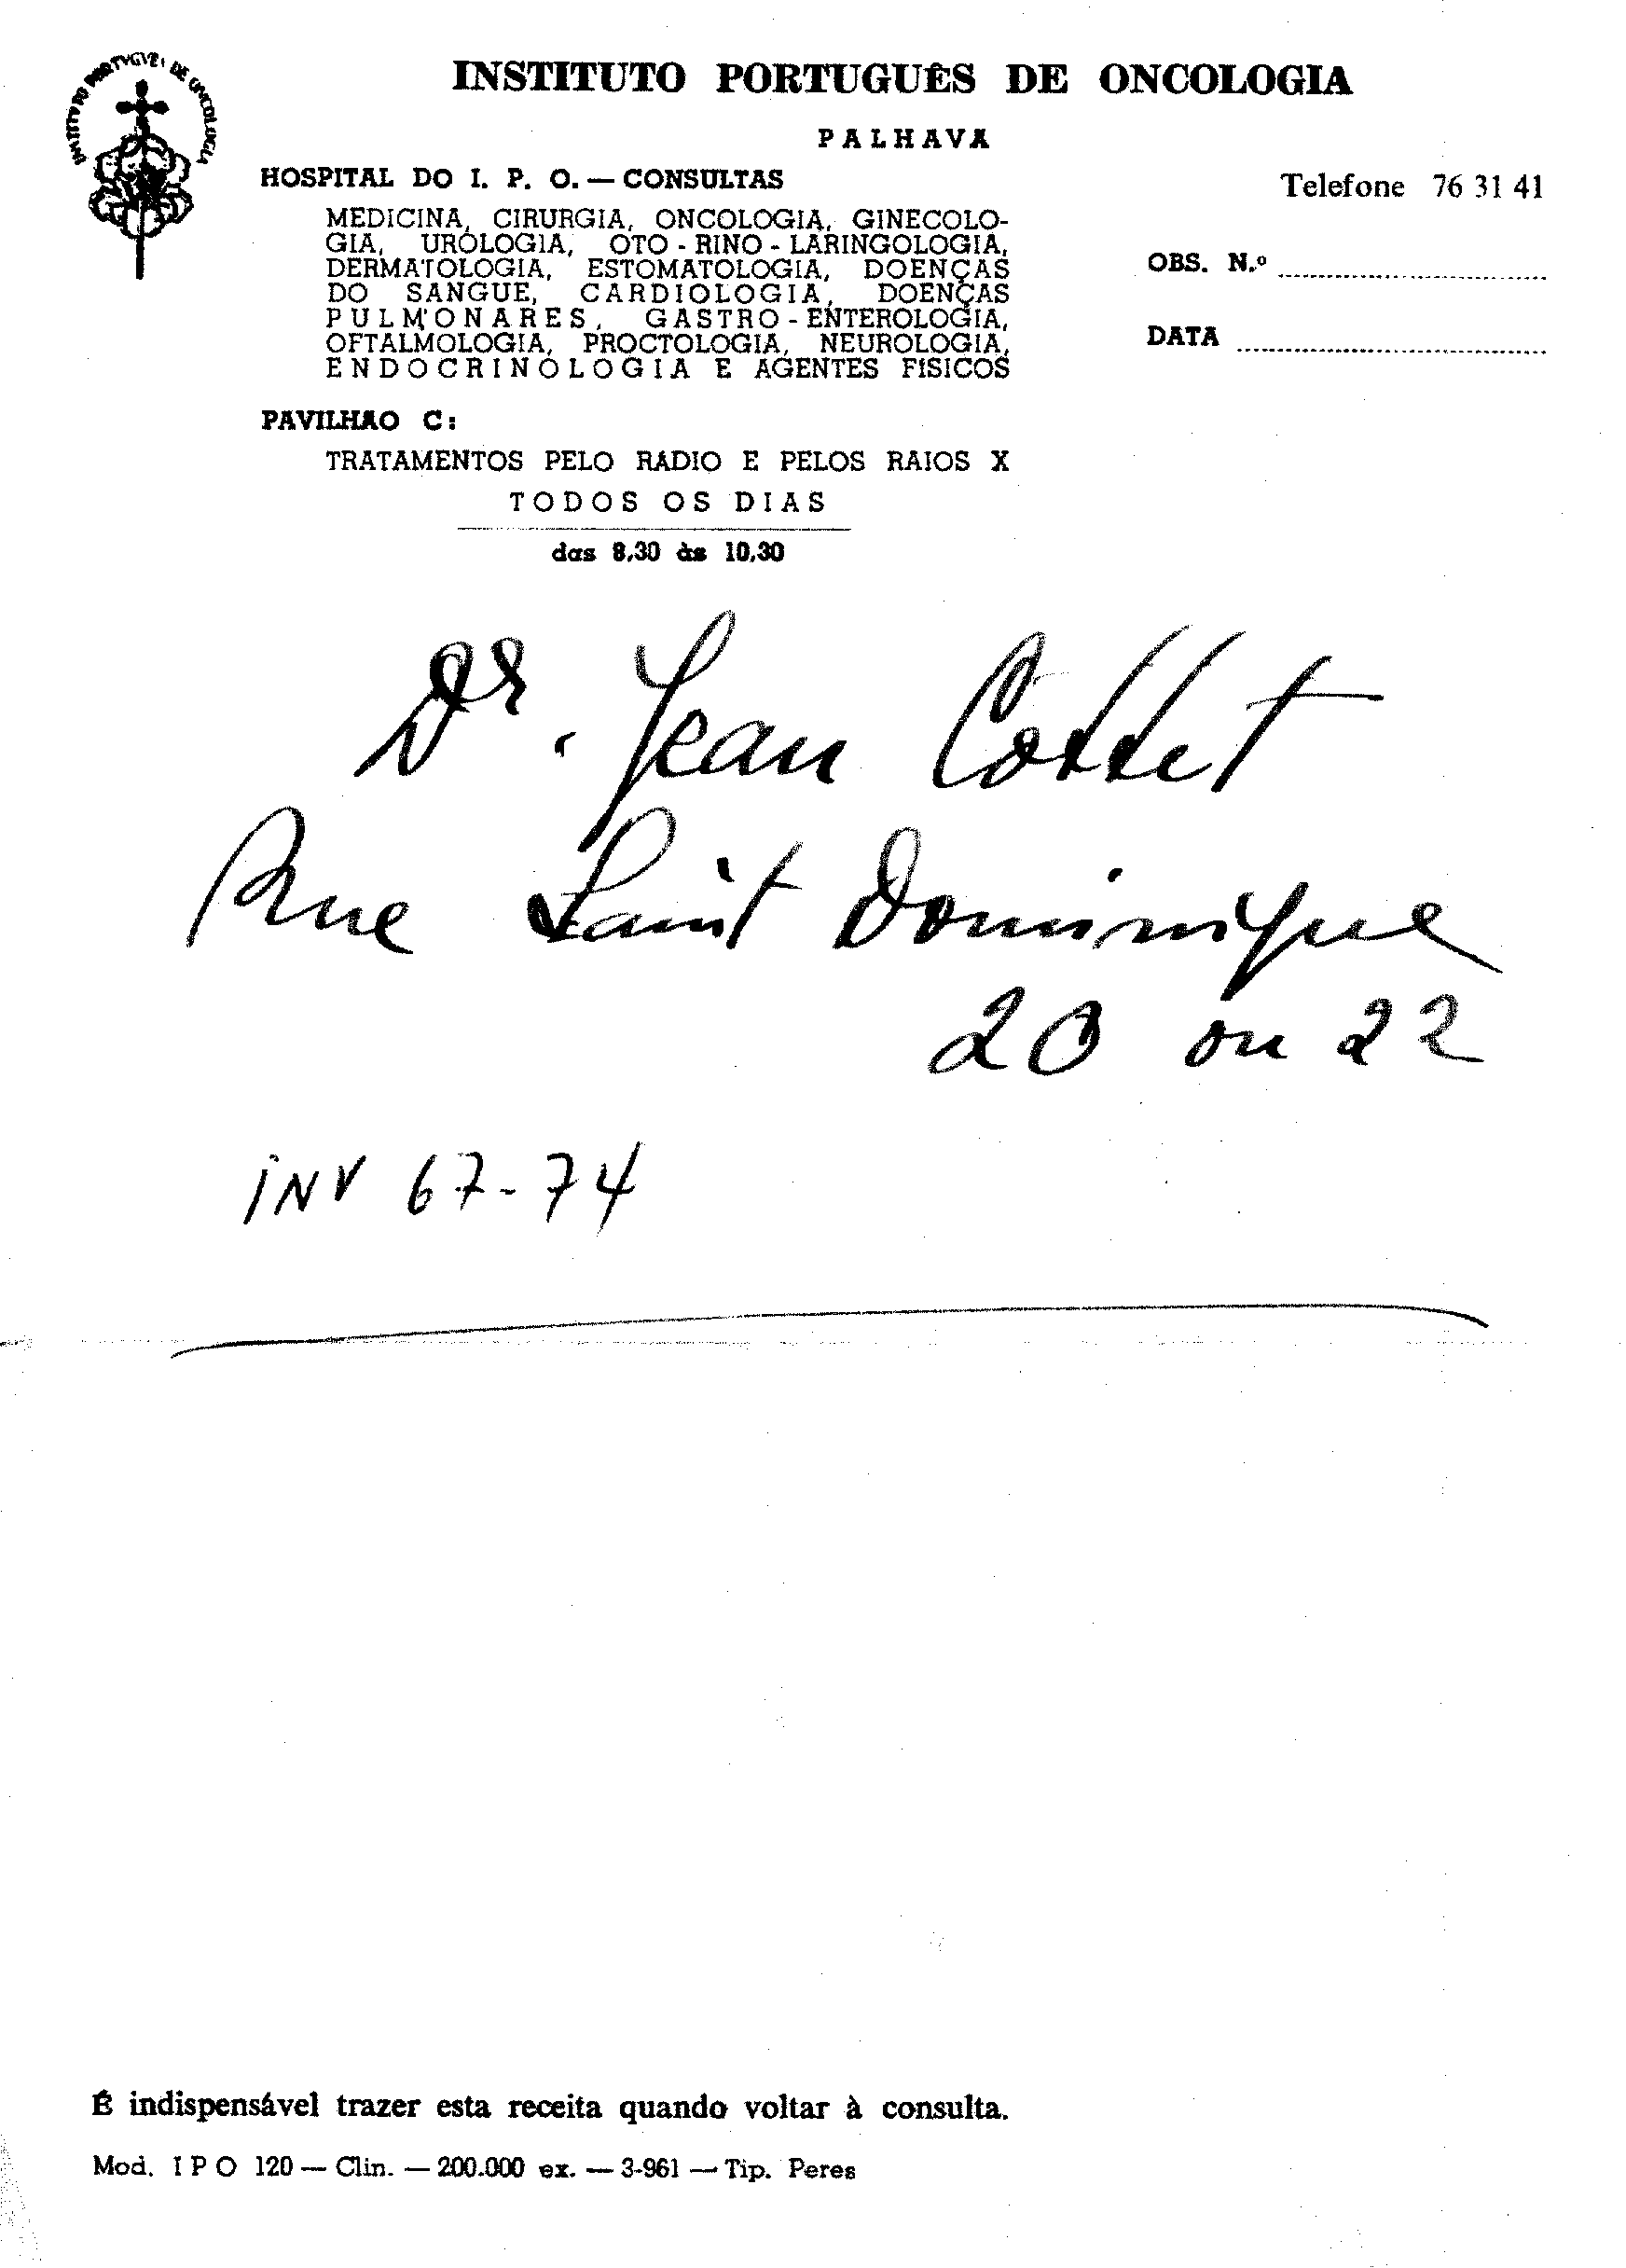 INSTITUTO PORTUGUÊS DE ONCOLOGIA
INSTITVTO PORTVGVES DE ONCOLOGIA
PALHAVA
HOSPITAL DO I. P. O. — CONSULTAS
Telefone 76 31 41
MEDICINA, CIRURGIA, ONCOLOGIA, GINECOLO-
GIA, UROLOGIA, OTO - RINO - LARINGOLOGIA,
DERMATOLOGIA, ESTOMATOLOGIA, DOENÇAS
DO SANGUE, CARDIOLOGIA, DOENÇAS
PULMONARES, GASTRO - ENTEROLOGIA,
OFTALMOLOGIA, PROCTOLOGIA, NEUROLOGIA,
ENDOCRINOLOGIA E AGENTES FISICOS
OBS. N.º
DATA
PAVILHAO C:
TRATAMENTOS PELO RADIO E PELOS RAIOS X
TODOS OS DIAS
das 8,30 às 10,30
Dr. Jean
Rue Saint Dominique
20 ou 22
INV 67-74
É indispensável trazer esta receita quando voltar à consulta.
Mod. I P O 120 — Clin. — 200.000 ex. — 3-961 — Tip. Peres